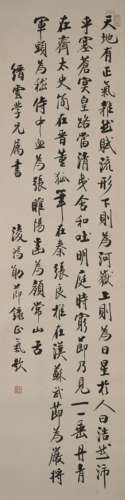 天地有正氣雜然賦流形下則為河嶽上則為日星於人曰浩然沛
乎塞蒼冥皇路當清夷含和吐明庭時窮節乃見一一垂丹青
在齊太史簡在晉董狐筆在秦張良椎在漢蘇武節為嚴將
軍頭為嵇侍中血為張睢陽齒為顏常山舌
縉雲學兄屬書
節錄正氣歌